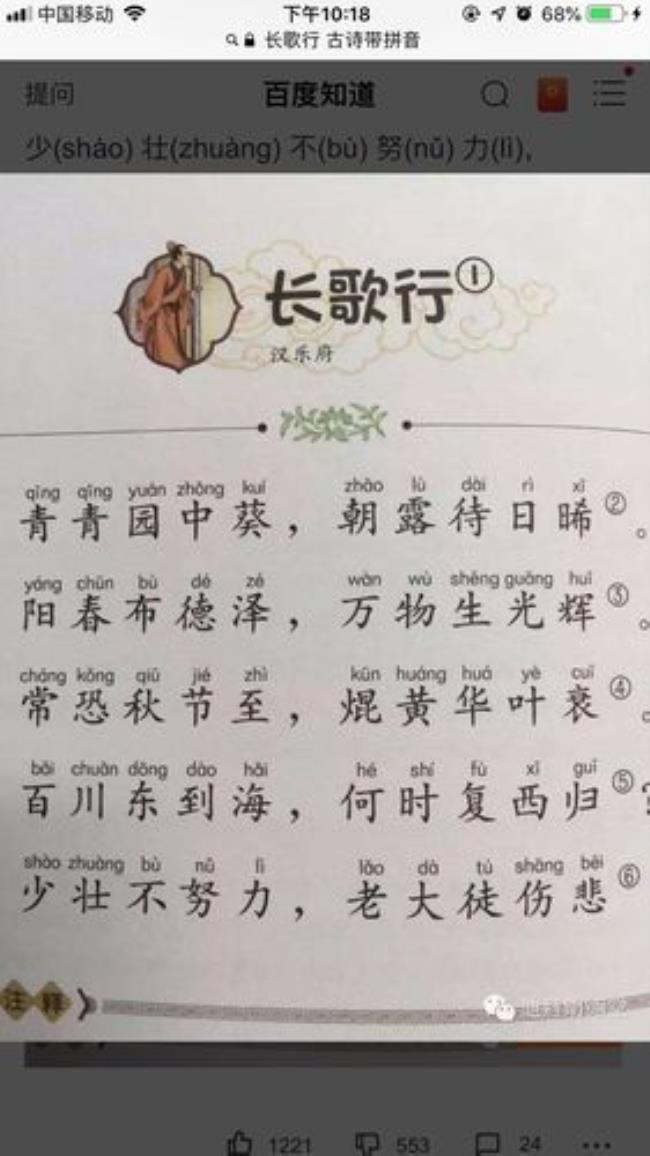 中国移动 下午10:18 68%
长歌行 古诗带拼音
提问 百度知道
少(shào) 壮(zhuàng) 不(bù) 努(nǔ) 力(lì),
长歌行①
汉乐府
qīng qīng yuán zhōng kuí zhāo lù dài rì xī
青青园中葵，朝露待日晞②。
yáng chūn bù dé zé wàn wù shēng guāng huī
阳春布德泽，万物生光辉③。
cháng kǒng qiū jié zhì kūn huáng huá yè cuī
常恐秋节至，焜黄华叶衰④。
bǎi chuān dōng dào hǎi hé shí fù xī guī
百川东到海，何时复西归⑤？
shào zhuàng bù nǔ lì lǎo dà tú shāng bēi
少壮不努力，老大徒伤悲⑥
注释
1221 553 24